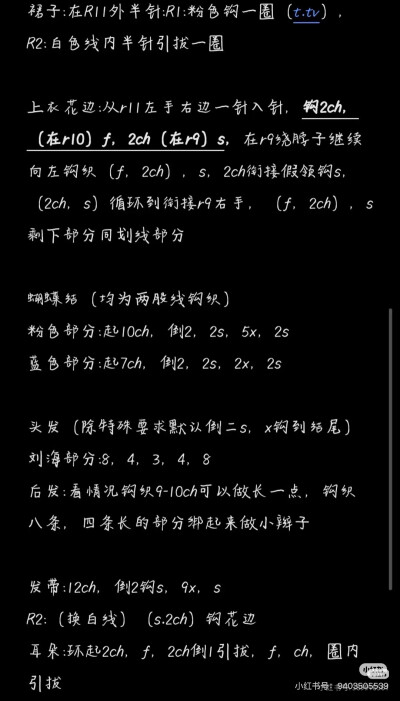 裙子:在R11外半针:R1:粉色钩一圈（t.tv），
R2:白色线内半针引拔一圈
上衣花边:从r11左手右边一针入针，钩2ch，
（在r10）f，2ch（在r9）s，在r9绕脖子继续
向左钩织（f，2ch），s，2ch衔接假领钩s，
（2ch，s）循环到衔接r9右手，（f，2ch），s
剩下部分同划线部分
蝴蝶结（均为两股线钩织）
粉色部分:起10ch，倒2，2s，5x，2s
蓝色部分:起7ch，倒2，2s，2x，2s
头发（除特殊要求默认倒二s，x钩到结尾）
刘海部分:8，4，3，4，8
后发:看情况钩织9-10ch可以做长一点，钩织
八条，四条长的部分绑起来做小辫子
发带:12ch，倒2钩s，9x，s
R2:（换白线）（s.2ch）钩花边
耳朵:环起2ch，f，2ch倒1引拔，f，ch，圈内
引拔
小红书
小红书号：9403505539